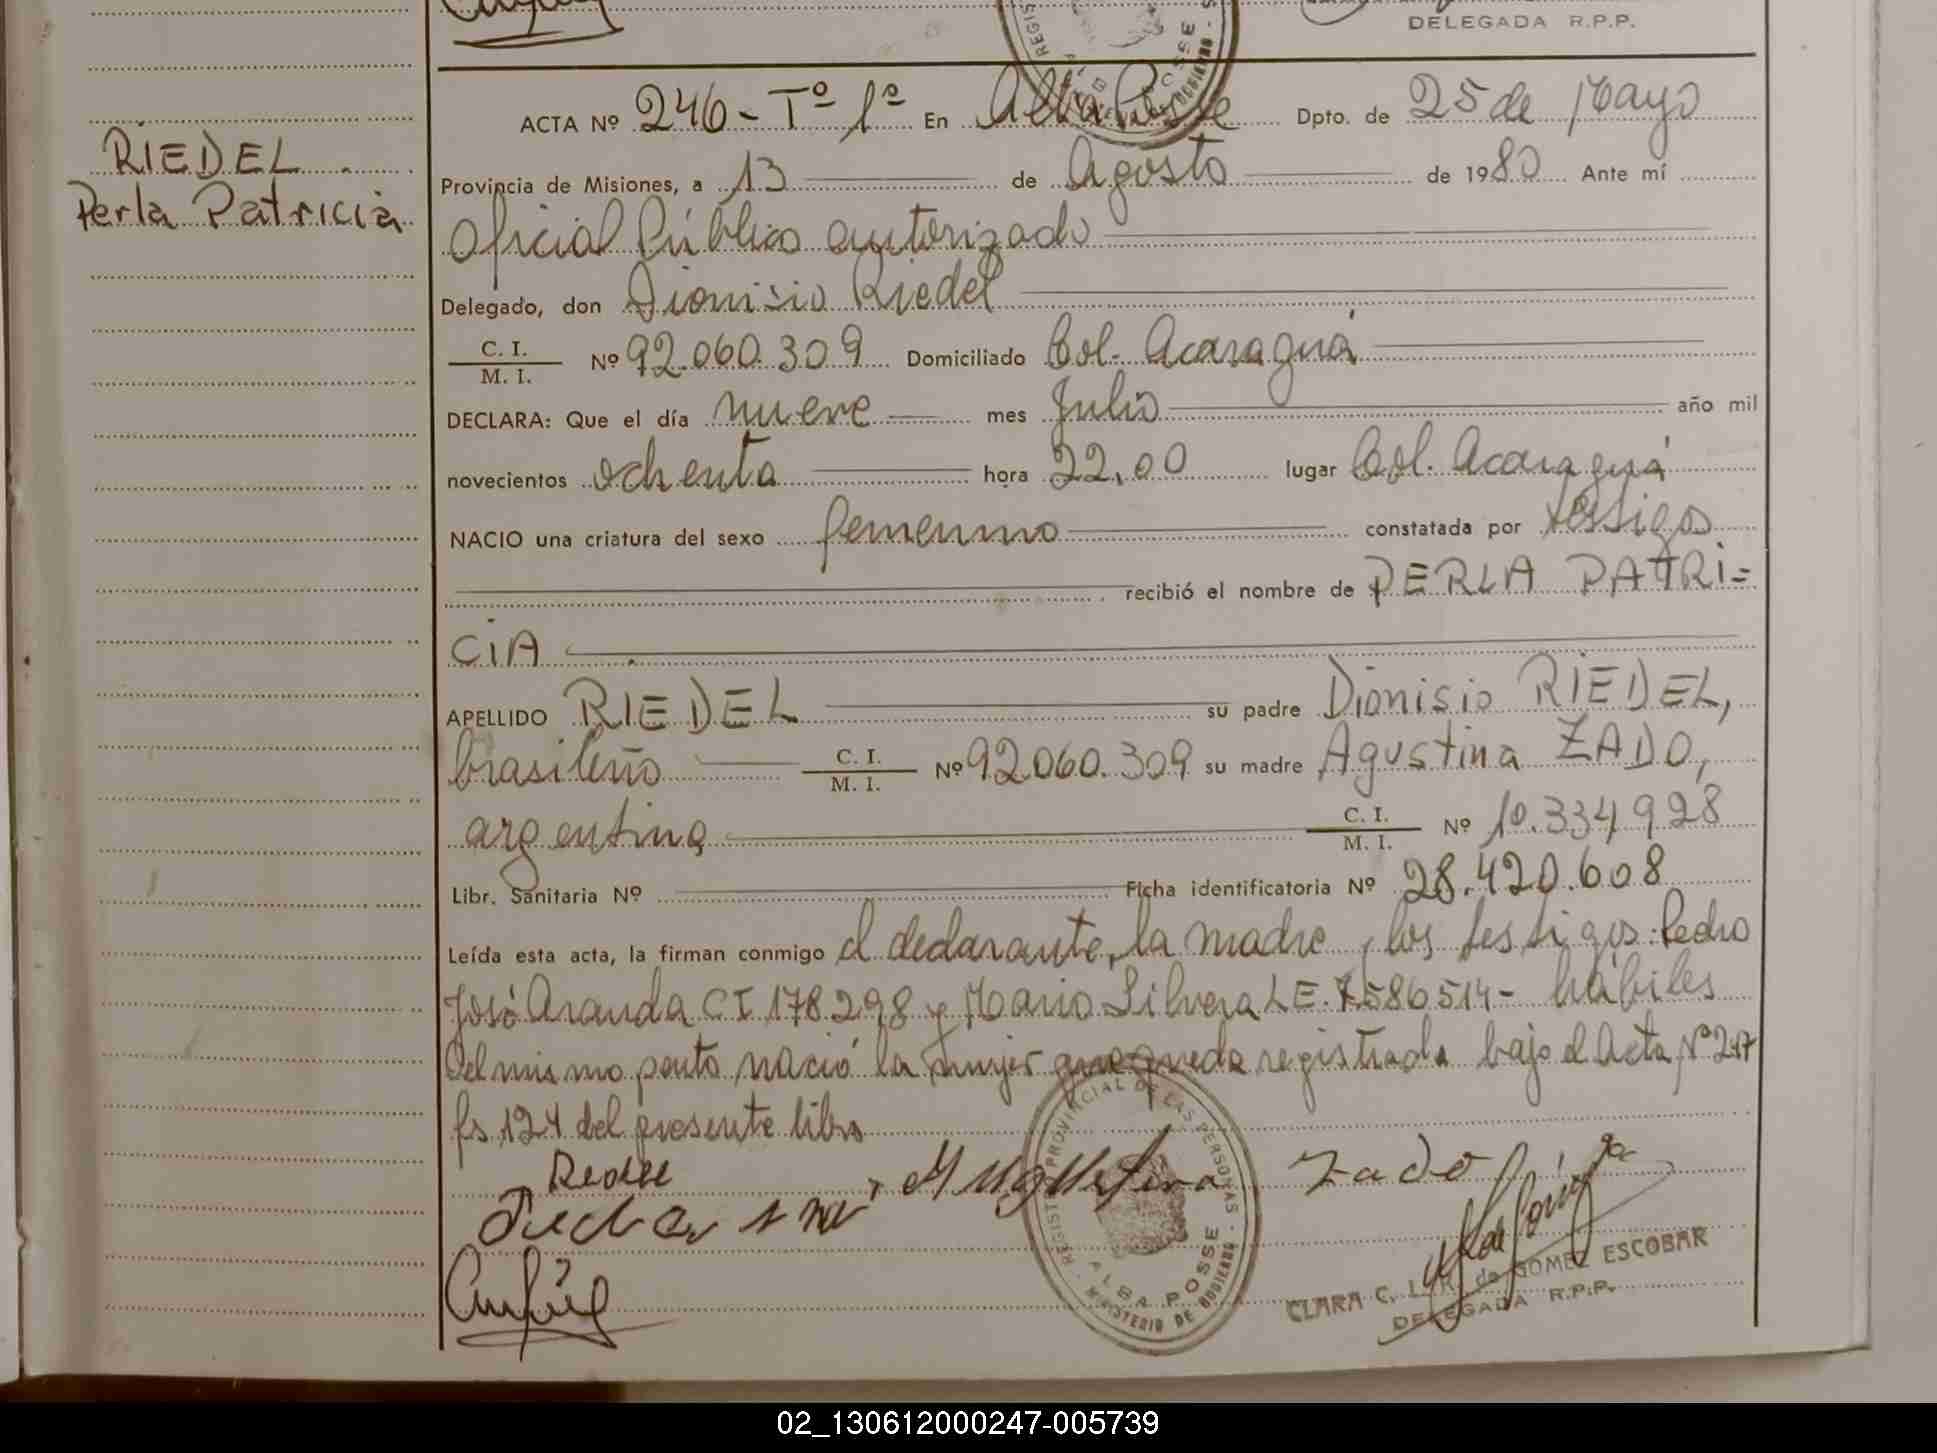 DELEGADA R.P.P.
ACTA Nº 246 - Tº 1º En Alba Posse Dpto. de 25 de Mayo
RIEDEL
Perla Patricia
Provincia de Misiones, a 13 de Agosto de 1980 Ante mí
Oficial Público autorizado
Delegado, don Dionisio Riedel
C. I.
M. I. Nº 92.060.309 Domiciliado Col. Acaraguá
DECLARA: Que el día nueve mes Julio año mil
novecientos ochenta hora 22,00 lugar Col. Acaraguá
NACIO una criatura del sexo femenino constatada por testigos
recibió el nombre de PERLA PATRI=
CIA
APELLIDO RIEDEL su padre Dionisio RIEDEL,
brasileño C. I.
M. I. Nº 92.060.309 su madre Agustina ZADO,
argentina C. I.
M. I. Nº 10.334.928
Libr. Sanitaria Nº Ficha identificatoria Nº 28.420.608
Leída esta acta, la firman conmigo el declarante, la madre, los testigos: Pedro
José Aranda CI 178.298 y Mario Silvera LE. 7.586.514 - hábiles
Del mismo parto nació la mujer que queda registrada bajo el Acta Nº 247
fs 124 del presente libro
REGISTRO PROVINCIAL DE LAS PERSONAS
ALBA POSSE
MINISTERIO DE GOBIERNO
Zado
CLARA C. de GOMEZ ESCOBAR
DELEGADA R.P.P.
02_130612000247-005739